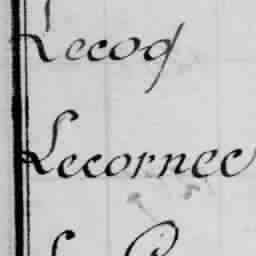 Lecoq
Lecornec